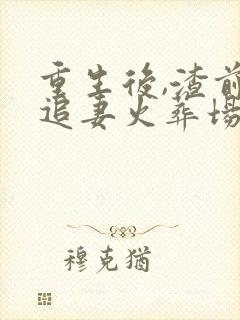 重生後,渣前
追妻火葬場
穆克猶